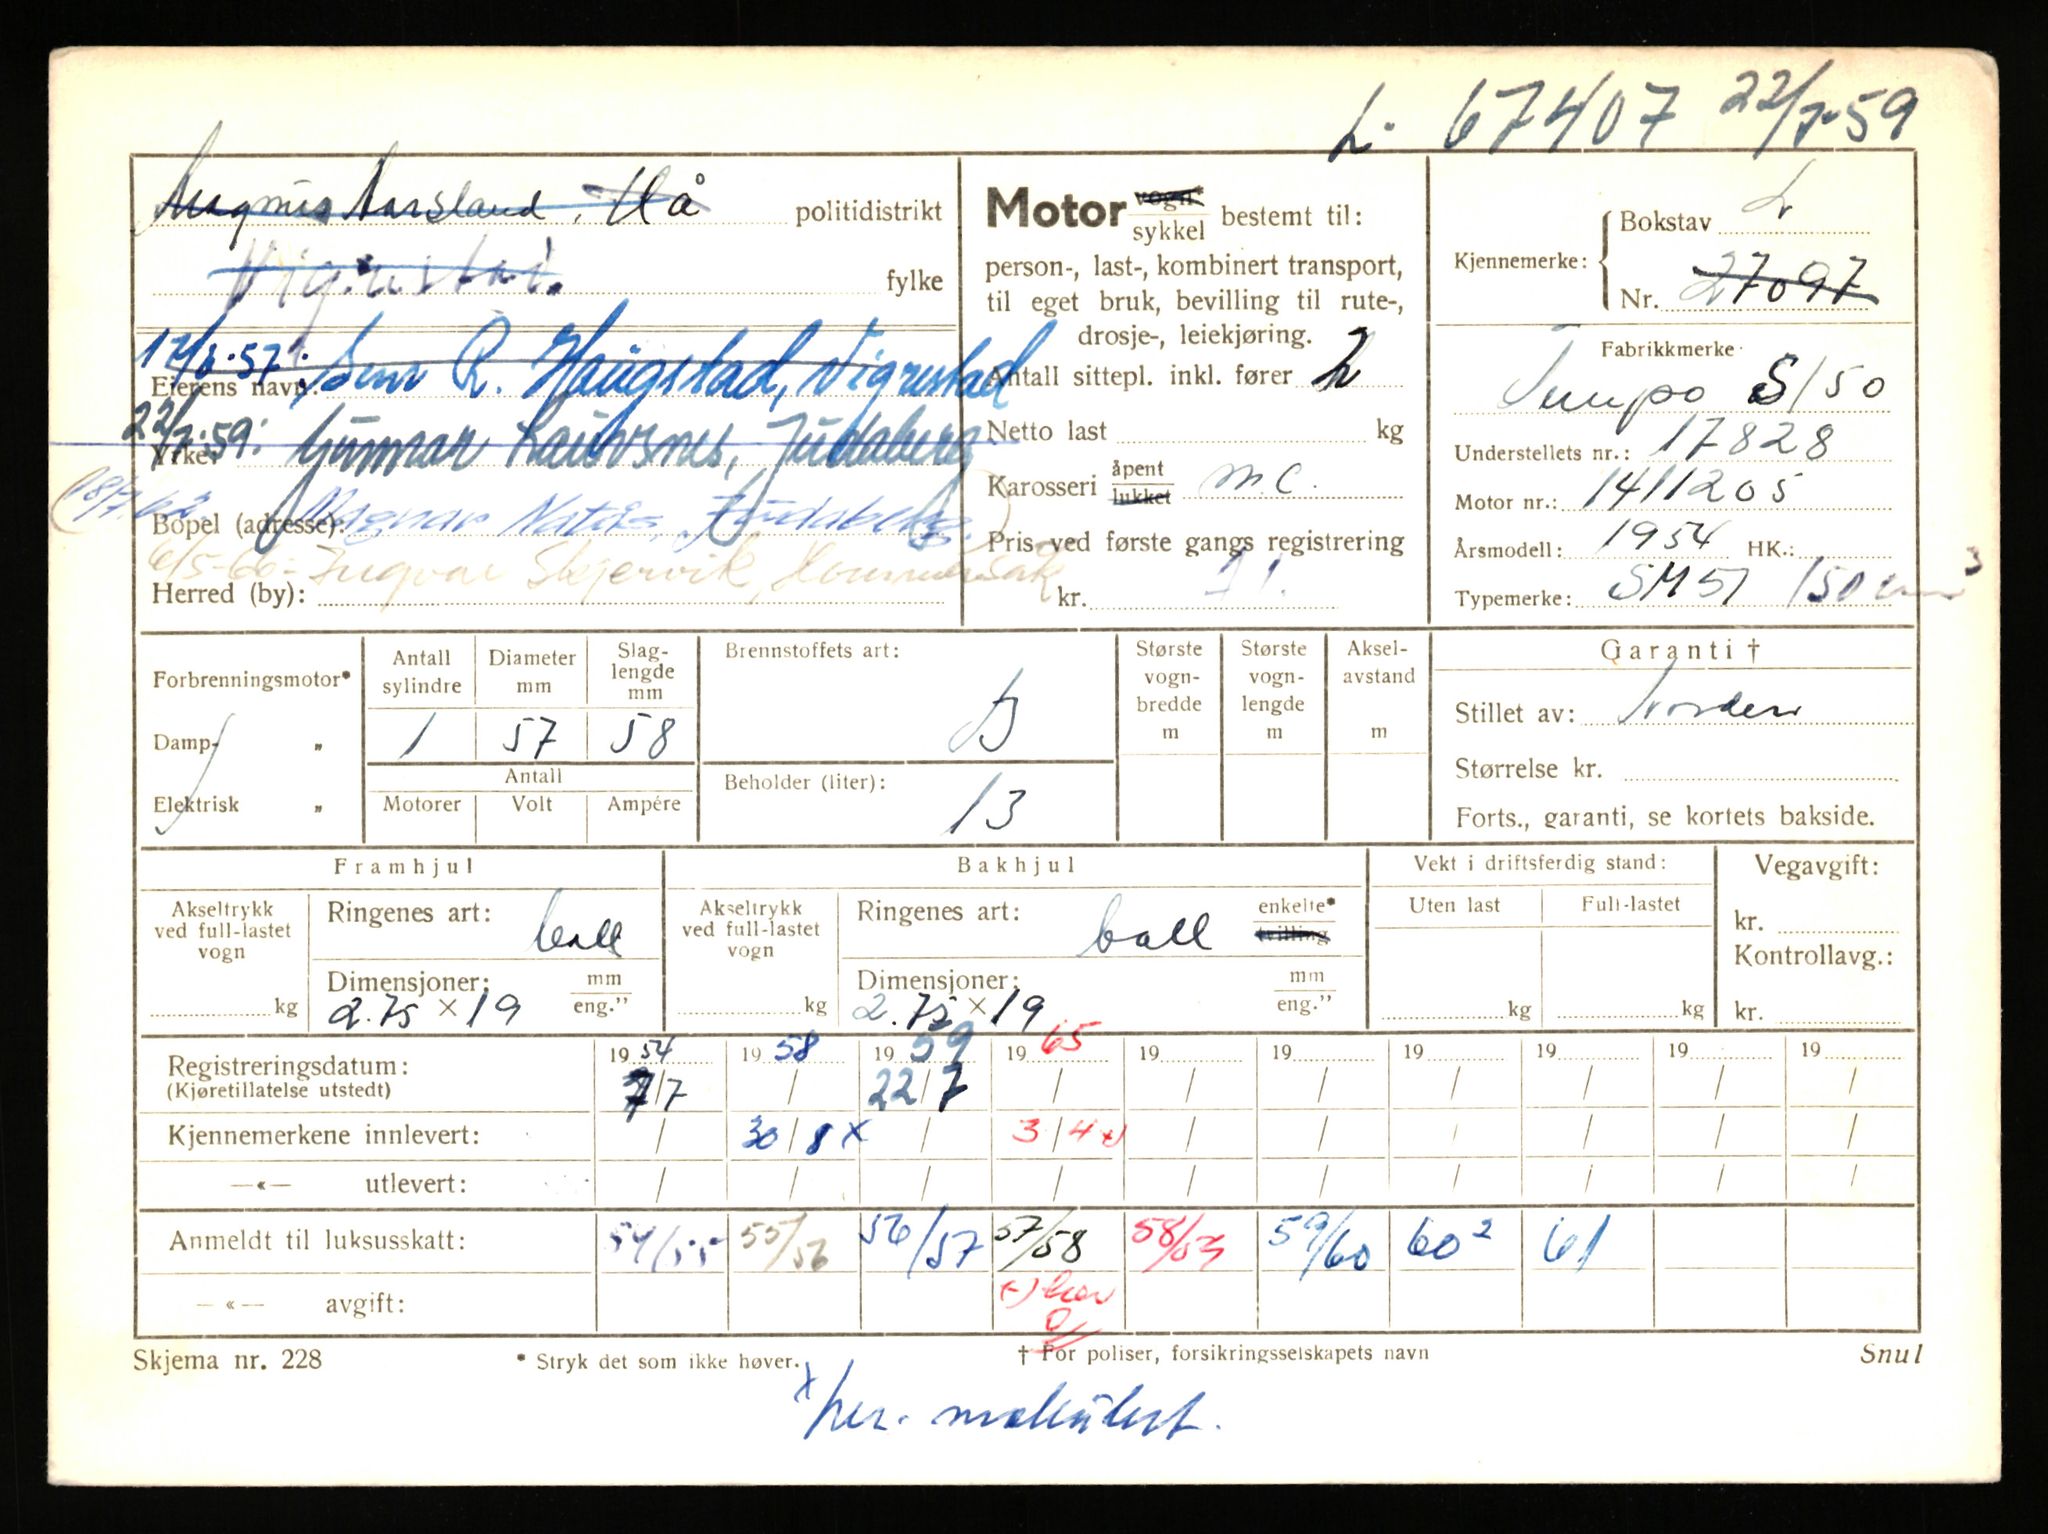 L. 67407 22/7-59
Magnus Aarsland, Hå politidistrikt
Vigrestad. fylke
17/8-57: R. Haugstad, Vigrestad
Eierens navn:
22/7-59: Gunnar Lauvsnes, Judaberg
Yrke:
18/7-62 Magnar Judaberg.
Bopel (adresse):
6/5-60 - Ingvar Skjervik, Hommersåk
Herred (by):
Motor vogn* sykkel bestemt til:
person-, last-, kombinert transport,
til eget bruk, bevilling til rute-,
drosje-, leiekjøring.
Antall sittepl. inkl. fører 2
Netto last kg
Karosseri åpent lukket m.c.
Pris ved første gangs registrering
kr.
Kjennemerke: Bokstav L
Nr. 27097
Fabrikkmerke
Tempo S/50
Understellets nr.: 17828
Motor nr.: 1411205
Årsmodell: 1954 HK.:
Typemerke: SM51 150 cm³
Forbrenningsmotor*
Damp- „
Elektrisk „
Antall sylindre Diameter mm Slaglengde mm
1 57 58
Antall
Motorer Volt Ampére
Brennstoffets art:
B
Beholder (liter):
13
Største vognbredde m
Største vognlengde m
Akselavstand m
Garanti †
Stillet av: Norden
Størrelse kr.
Forts., garanti, se kortets bakside.
Framhjul
Akseltrykk ved full-lastet vogn
kg
Ringenes art: ball
Dimensjoner: mm eng."
2.75 × 19
Bakhjul
Akseltrykk ved full-lastet vogn
kg
Ringenes art: ball enkelte* tvilling
Dimensjoner: mm eng."
2.75 × 19
Vekt i driftsferdig stand:
Uten last Full-lastet
kg kg
Vegavgift:
kr.
Kontrollavg.:
kr.
Registreringsdatum: 19 54 19 58 19 59 19 65 19 19 19 19 19 19
(Kjøretillatelse utstedt) 7/7 / 22/7 / / / / / / /
Kjennemerkene innlevert: / 30/8 x / 3/4 / / / / / /
—«— utlevert: / / / / / / / / / /
Anmeldt til luksusskatt: 54/55 55/56 56/57 57/58 58/59 59/60 60² 61
—«— avgift:
Skjema nr. 228
* Stryk det som ikke høver.
† For poliser, forsikringsselskapets navn
Snul
x